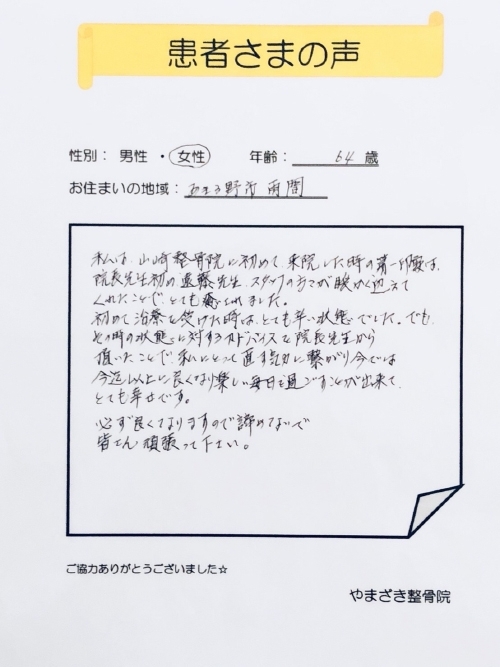 患者さまの声
性別： 男性 ・ 女性 年齢： 64 歳
お住まいの地域： あきる野市 雨間
私は、山崎整骨院に初めて来院した時の第一印象は、
院長先生初め 先生、スタッフの方々が暖かく迎えて
くれたことで、とても癒されました。
初めて治療を受けた時は、とても辛い状態でした。でも、
その時の状態に対するアドバイスを院長先生から
頂いたことで、私にとって直す気力に繋がり今では
今迄以上に良くなり楽しい毎日を過ごすことが出来て、
とても幸せです。
必ず良くなりますので諦めないで
皆さん頑張って下さい。
ご協力ありがとうございました☆
やまざき整骨院